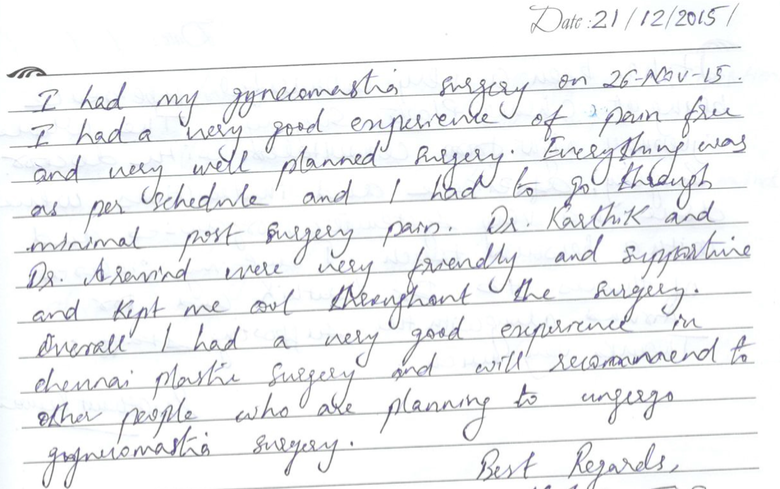 Date: 21/12/2015/
I had my gynecomastia surgery on 26-Nov-15.
I had a very good experience of pain free
and very well planned surgery. Everything was
as per schedule and I had to go through
minimal post surgery pain. Dr. Karthik and
Dr. Aravind were very friendly and supportive
and kept me cool throughout the surgery.
Overall I had a very good experience in
chennai plastic surgery and will recommend to
other people who are planning to ungergo
gynecomastia surgery.
Best Regards,